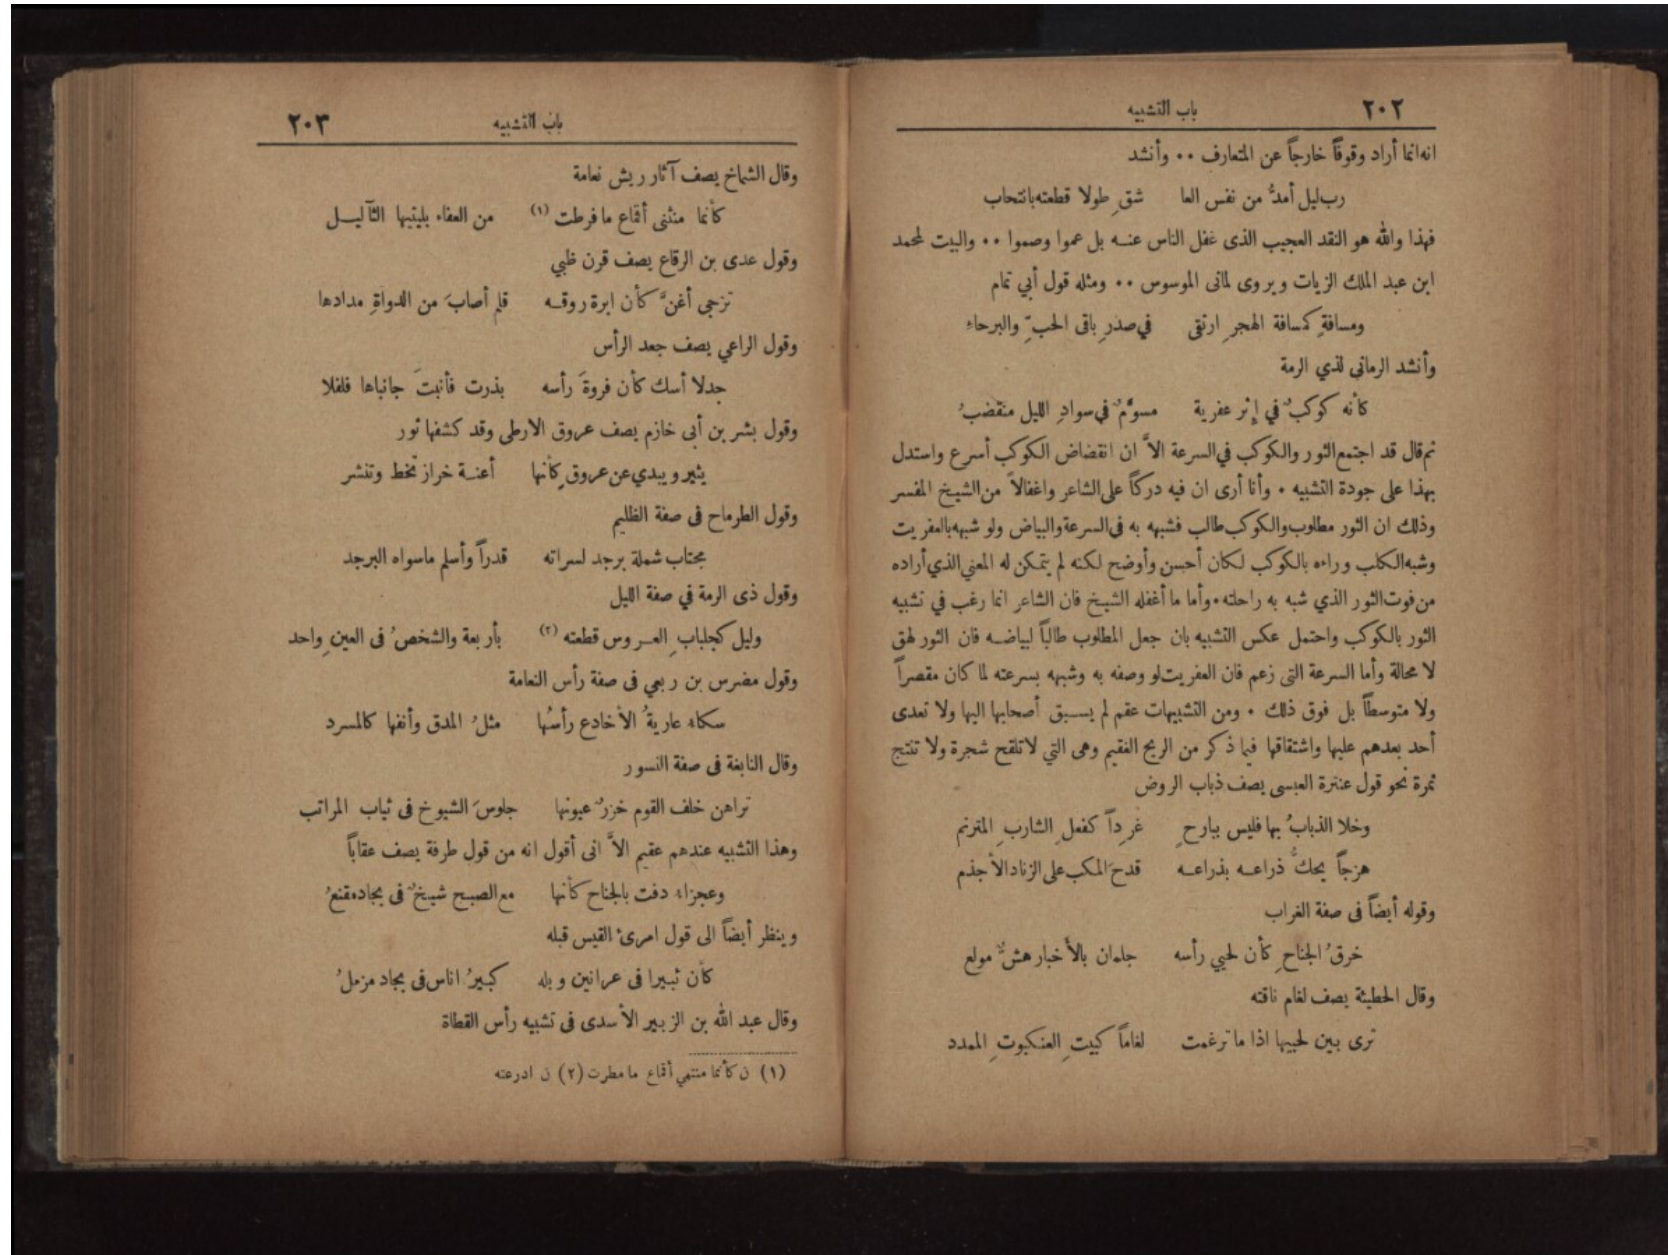 ٢٠٢ باب التشبيه
انه انما أراد وقوفاً خارجاً عن المتعارف ٠٠ وأنشد
رب ليل أمدُّ من نفس العا شق ِ طولا قطعته بانتحاب
فهذا والله هو النقد العجيب الذى غفل الناس عنه بل عموا وصموا ٠٠ والبيت لمحمد
ابن عبد الملك الزيات ويروى لمانى الموسوس ٠٠ ومثله قول أبي تمام
ومسافةٍ كمسافة الهجرِ ارتقى في صدرِ باقى الحبِّ والبرحاءِ
وأنشد الرمانى لذي الرمة
كأنه كوكبٌ في إِثر عفرية مسوَّمٌ في سوادِ الليل منقضبُ
ثم قال قد اجتمع الثور والكوكب في السرعة الاَّ ان انقضاض الكوكب أسرع واستدل
بهذا على جودة التشبيه ٠ وأنا أرى ان فيه دركاً على الشاعر واغفالاً من الشيخ المفسر
وذلك ان الثور مطلوب والكوكب طالب فشبهه به فى السرعة والبياض ولو شبهه بالعفريت
وشبه الكلب وراءه بالكوكب لكان أحسن وأوضح لكنه لم يتمكن له المعني الذي أراده
من فوت الثور الذي شبه به راحلته ٠ وأما ما أغفله الشيخ فان الشاعر انما رغب في تشبيه
الثور بالكوكب واحتمل عكس التشبيه بان جعل المطلوب طالباً لبياضه فان الثور لهق
لا محالة وأما السرعة التى زعم فان العفريت لو وصفه به وشبهه بسرعته لما كان مقصراً
ولا متوسطاً بل فوق ذلك ٠ ومن التشبيهات عقم لم يسبق أصحابها اليها ولا تعدى
أحد بعدهم عليها واشتقاقها فيما ذكر من الريح العقيم وهى التي لا تلقح شجرة ولا تنتج
ثمرة نحو قول عنترة العبسى يصف ذباب الروض
وخلا الذبابُ بها فليس ببارحٍ غرِداً كفعلِ الشاربِ المترنم
هزجاً يحكُّ ذراعه بذراعه قدحَ المكب على الزناد الأجذم
وقوله أيضاً فى صفة الغراب
خرقُ الجناحِ كأن لحيي رأسه جلمان بالأخبار هشٌّ مولع
وقال الحطيئة يصف لغام ناقته
ترى بين لحييها اذا ما ترغمت لغاماً كبيتِ العنكبوتِ الممدد
باب التشبيه ٢٠٣
وقال الشماخ يصف آثار ريش نعامة
كأنما منثنى أقماع ما فرطت (١) من العفاء بليتيها الثآليل
وقول عدى بن الرقاع يصف قرن ظبي
تزجي أغنَّ كأن ابرة روقه قلم أصابَ من الدواةِ مدادها
وقول الراعي يصف جعد الرأس
جدلا أسك كأن فروةَ رأسه بذرت فأنبتَ جانباها فلفلا
وقول بشر بن أبى خازم يصف عروق الارطى وقد كشفها ثور
يثير ويبدي عن عروق كأنها أعنة خراز تحط وتنشر
وقول الطرماح فى صفة الظليم
مجتاب شملة برجد لسراته قدراً وأسلم ماسواه البرجد
وقول ذى الرمة في صفة الليل
وليل كجلبابِ العروس قطعته (٢) بأربعة والشخصُ فى العينِ واحد
وقول مضرس بن ربعي فى صفة رأس النعامة
سكاء عاريةُ الأخادع رأسُها مثلُ المدق وأنفها كالمسرد
وقال النابغة فى صفة النسور
تراهن خلف القوم خزرٌ عيونها جلوسَ الشيوخ فى ثياب المراتب
وهذا التشبيه عندهم عقيم الاَّ انى أقول انه من قول طرفة يصف عقاباً
وعجزاء دفت بالجناح كأنها مع الصبح شيخٌ فى بجاد مقنعُ
وينظر أيضاً الى قول امرئ القيس قبله
كأن ثبيرا فى عرانين وبله كبيرُ اناس فى بجاد مزملُ
وقال عبد الله بن الزبير الأسدى فى تشبيه رأس القطاة
(١) ن كأنما منتهي أقماع ما مطرت (٢) ن ادرعته